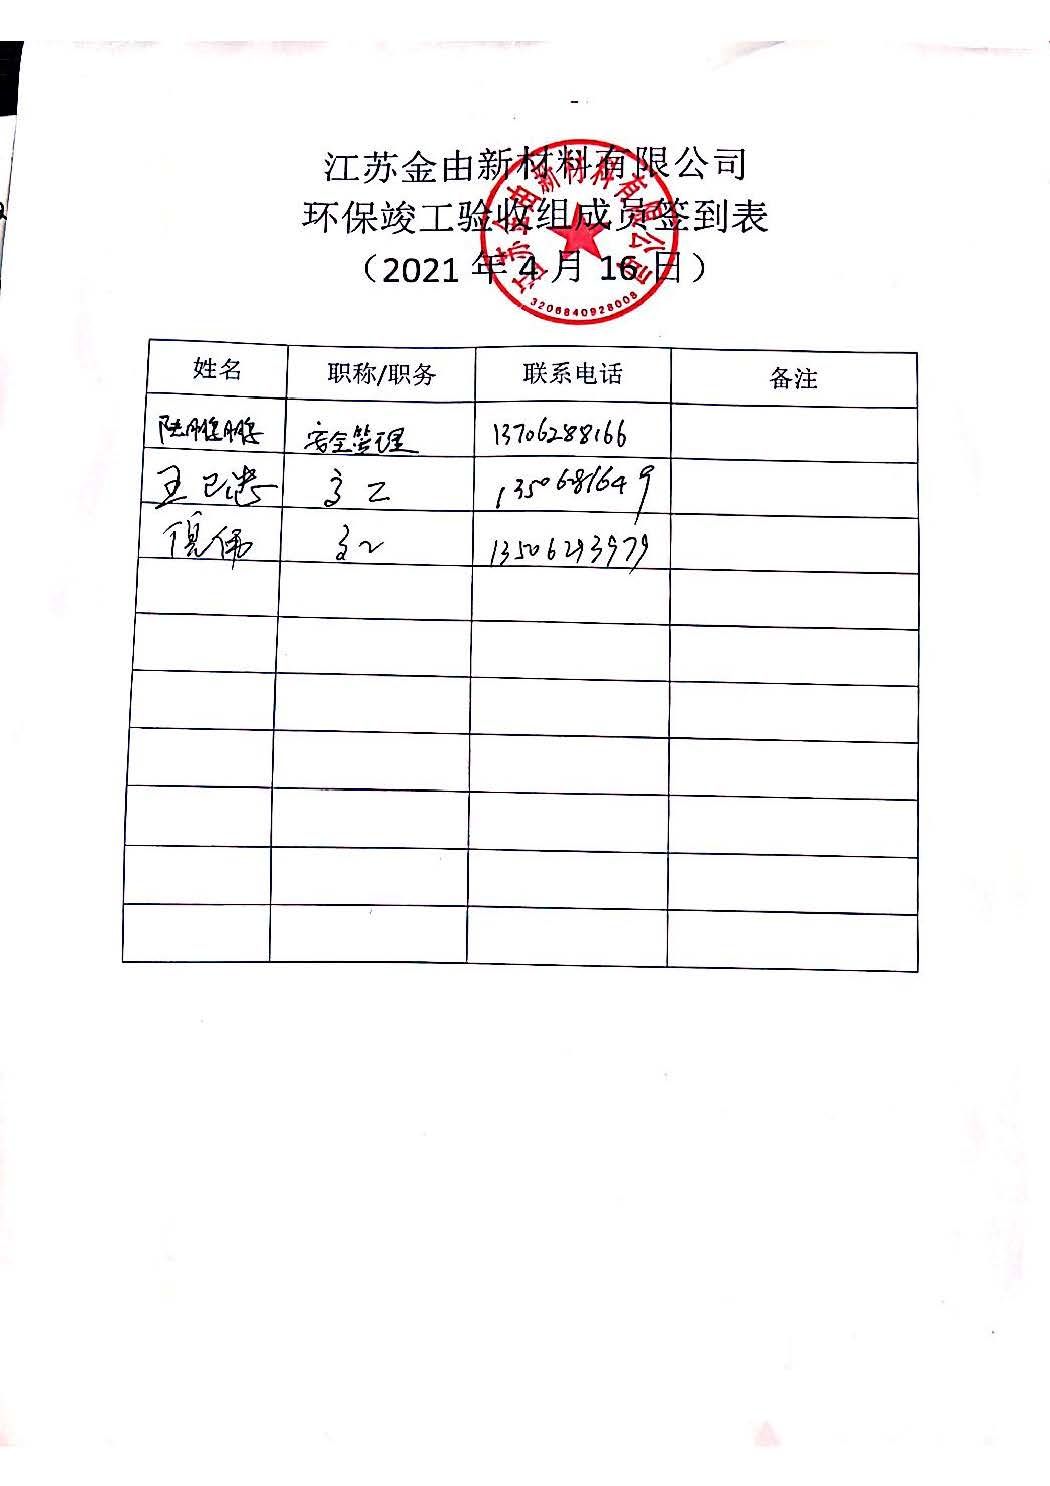 江苏金由新材料有限公司
环保竣工验收组成员签到表
（2021 年 4 月 16 日）
江苏金由新材料有限公司
3206840928008
姓名 职称/职务 联系电话 备注
陆鹏鹏 安全管理 13706288166
王 高工 13506281649
伟 高工 13506293979